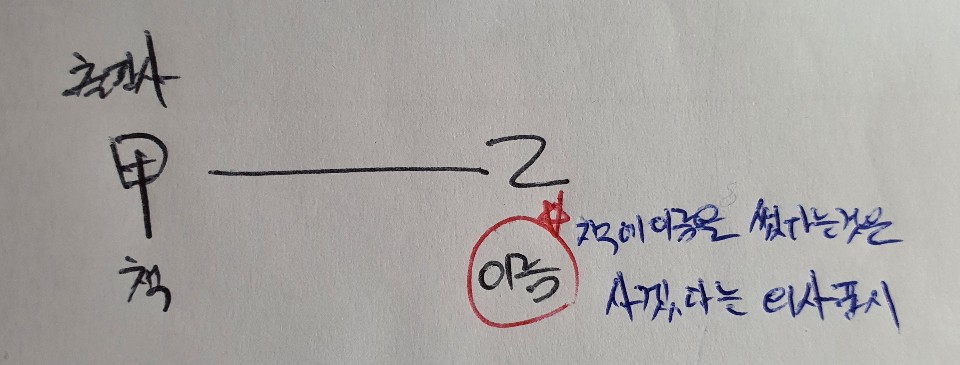 출판사
甲 乙
책 이름
☆ 책에 이름을 썼다는것은
사겠다는 의사표시